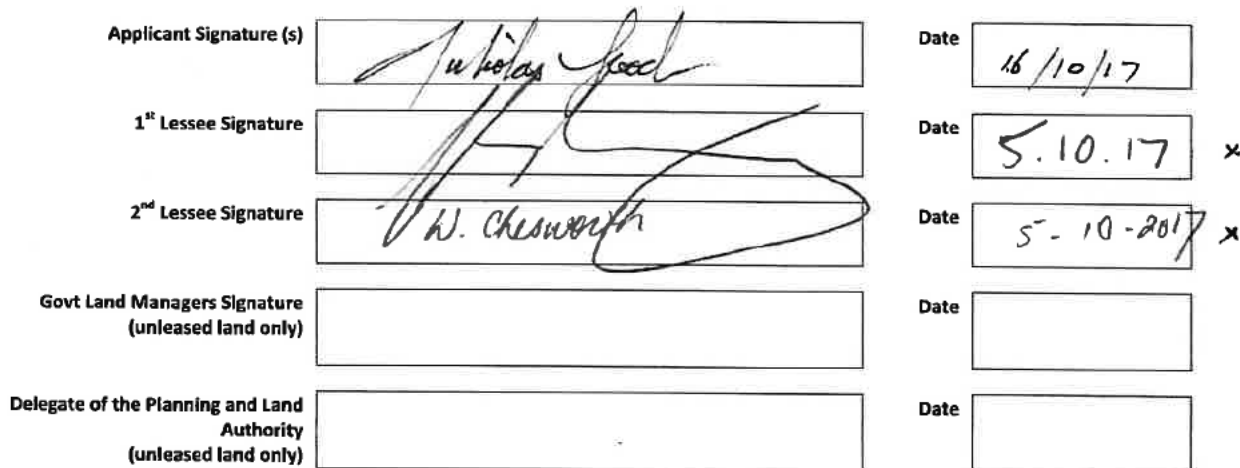 Applicant Signature (s) Nicholas Date 16/10/17
1st Lessee Signature Date 5.10.17 x
2nd Lessee Signature W. Chesworth Date 5-10-2017 x
Govt Land Managers Signature Date
(unleased land only)
Delegate of the Planning and Land Date
Authority
(unleased land only)